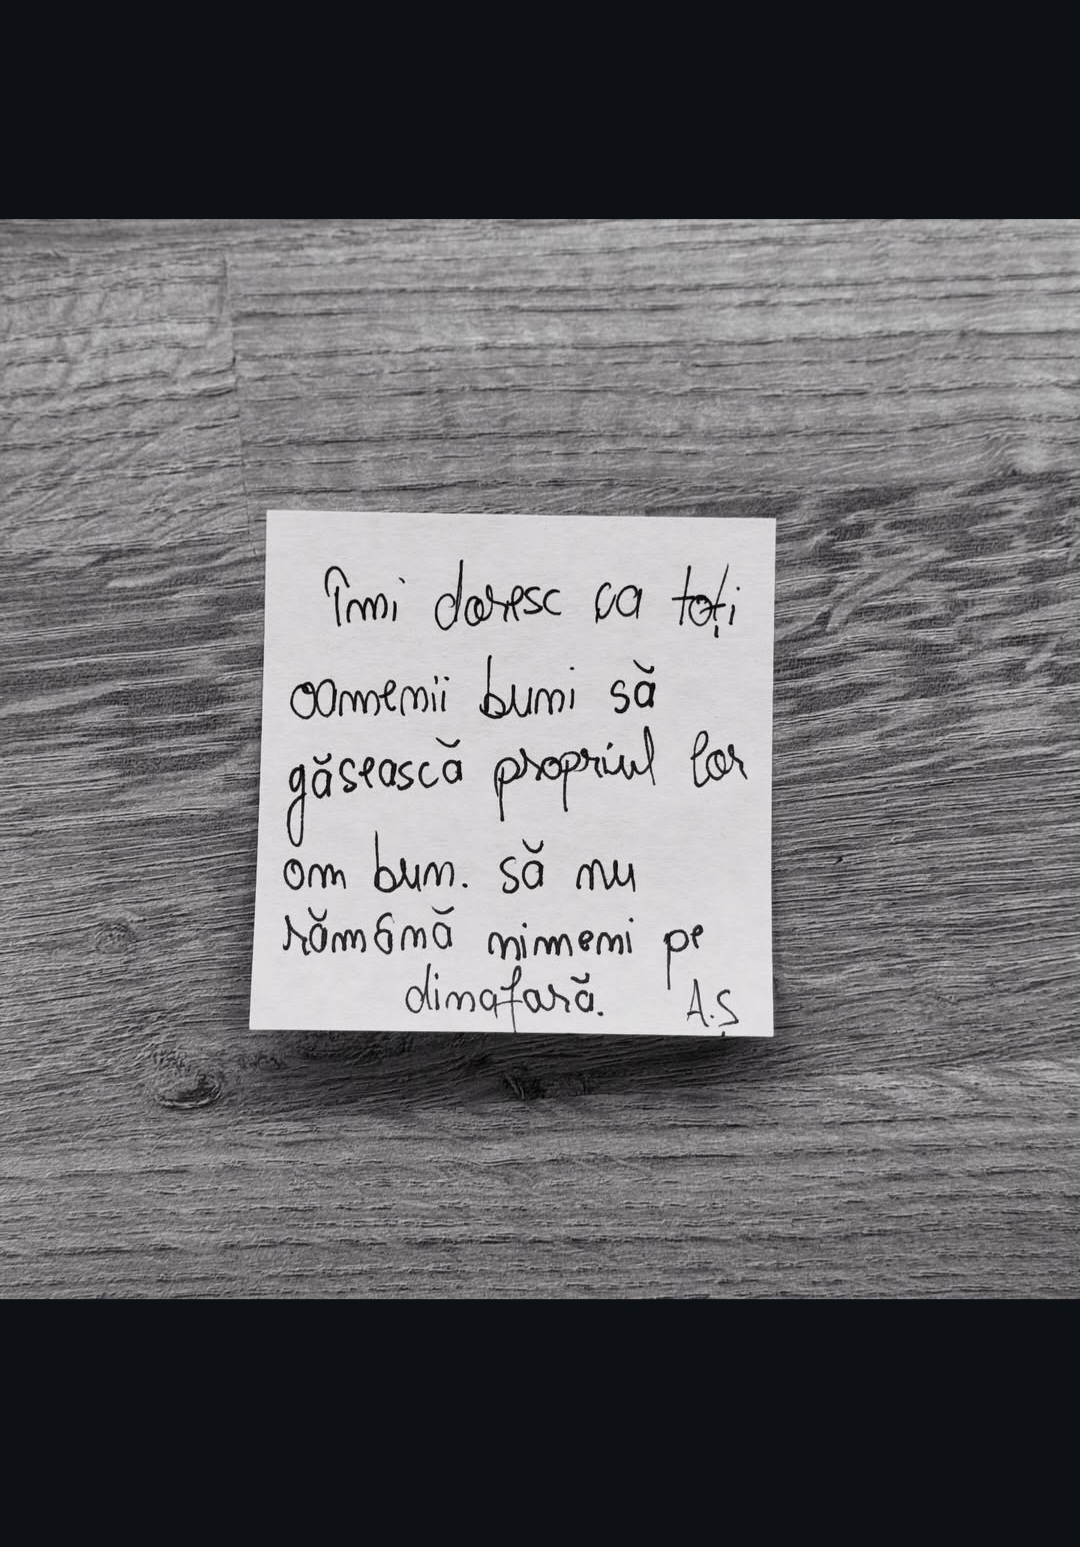 Îmi doresc ca toți
oamenii buni să
găsească propriul lor
om bun. să nu
rămână nimeni pe
dinafară. A.Ș